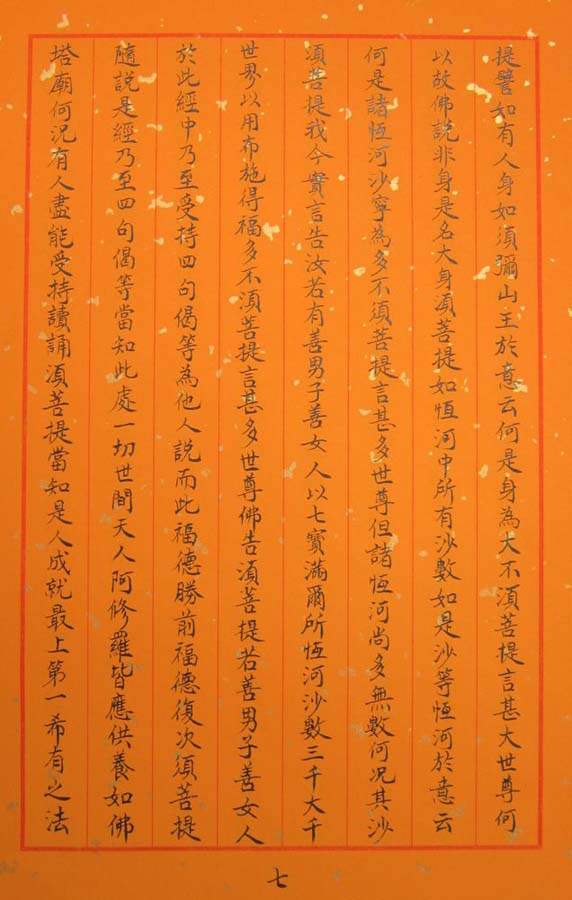 提譬如有人身如須彌山王於意云何是身為大不須菩提言甚大世尊何
以故佛說非身是名大身須菩提如恒河中所有沙數如是沙等恒河於意云
何是諸恒河沙寧為多不須菩提言甚多世尊但諸恒河尚多無數何況其沙
須菩提我今實言告汝若有善男子善女人以七寶滿爾所恒河沙數三千大千
世界以用布施得福多不須菩提言甚多世尊佛告須菩提若善男子善女人
於此經中乃至受持四句偈等為他人說而此福德勝前福德復次須菩提
隨說是經乃至四句偈等當知此處一切世間天人阿修羅皆應供養如佛
塔廟何況有人盡能受持讀誦須菩提當知是人成就最上第一希有之法
七